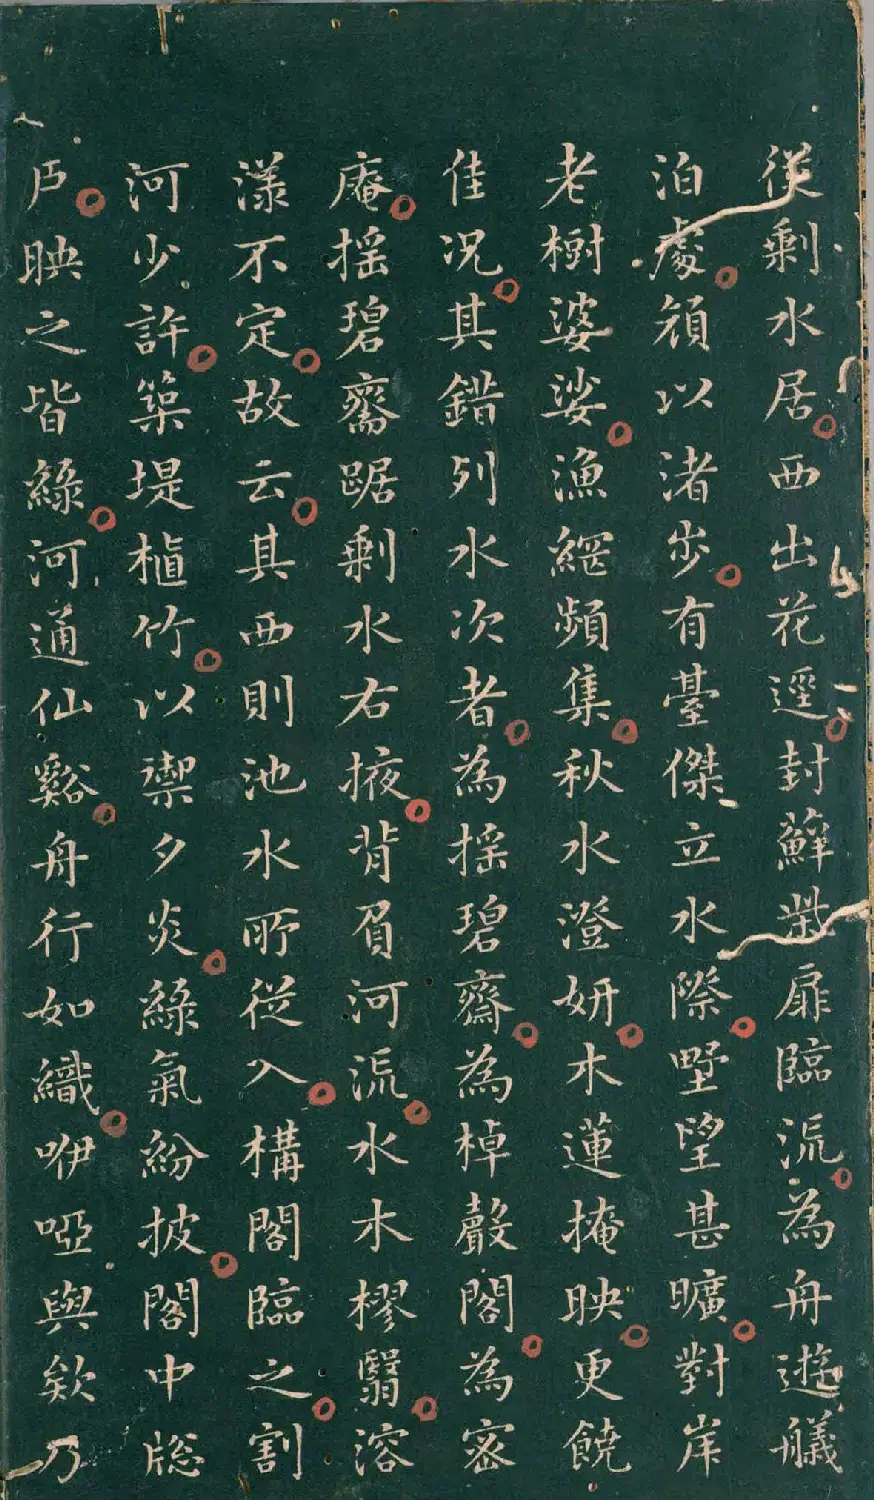 從剩水居西出花逕封蘚柴扉臨流為舟遊艤
泊處頫以渚步有臺傑立水際墅望甚曠對岸
老樹婆娑漁網頻集秋水澄妍木蓮掩映更饒
佳况其錯列水次者為摇碧齋為棹聲閣為密
庵摇碧齋踞剩水右掖背眉河流水木樛翳溶
漾不定故云其西則池水所從入構閣臨之割
河少許築堤植竹以禦夕炎綠氣紛披閣中牕
戶映之皆綠河通仙谿舟行如織咿啞與欸乃